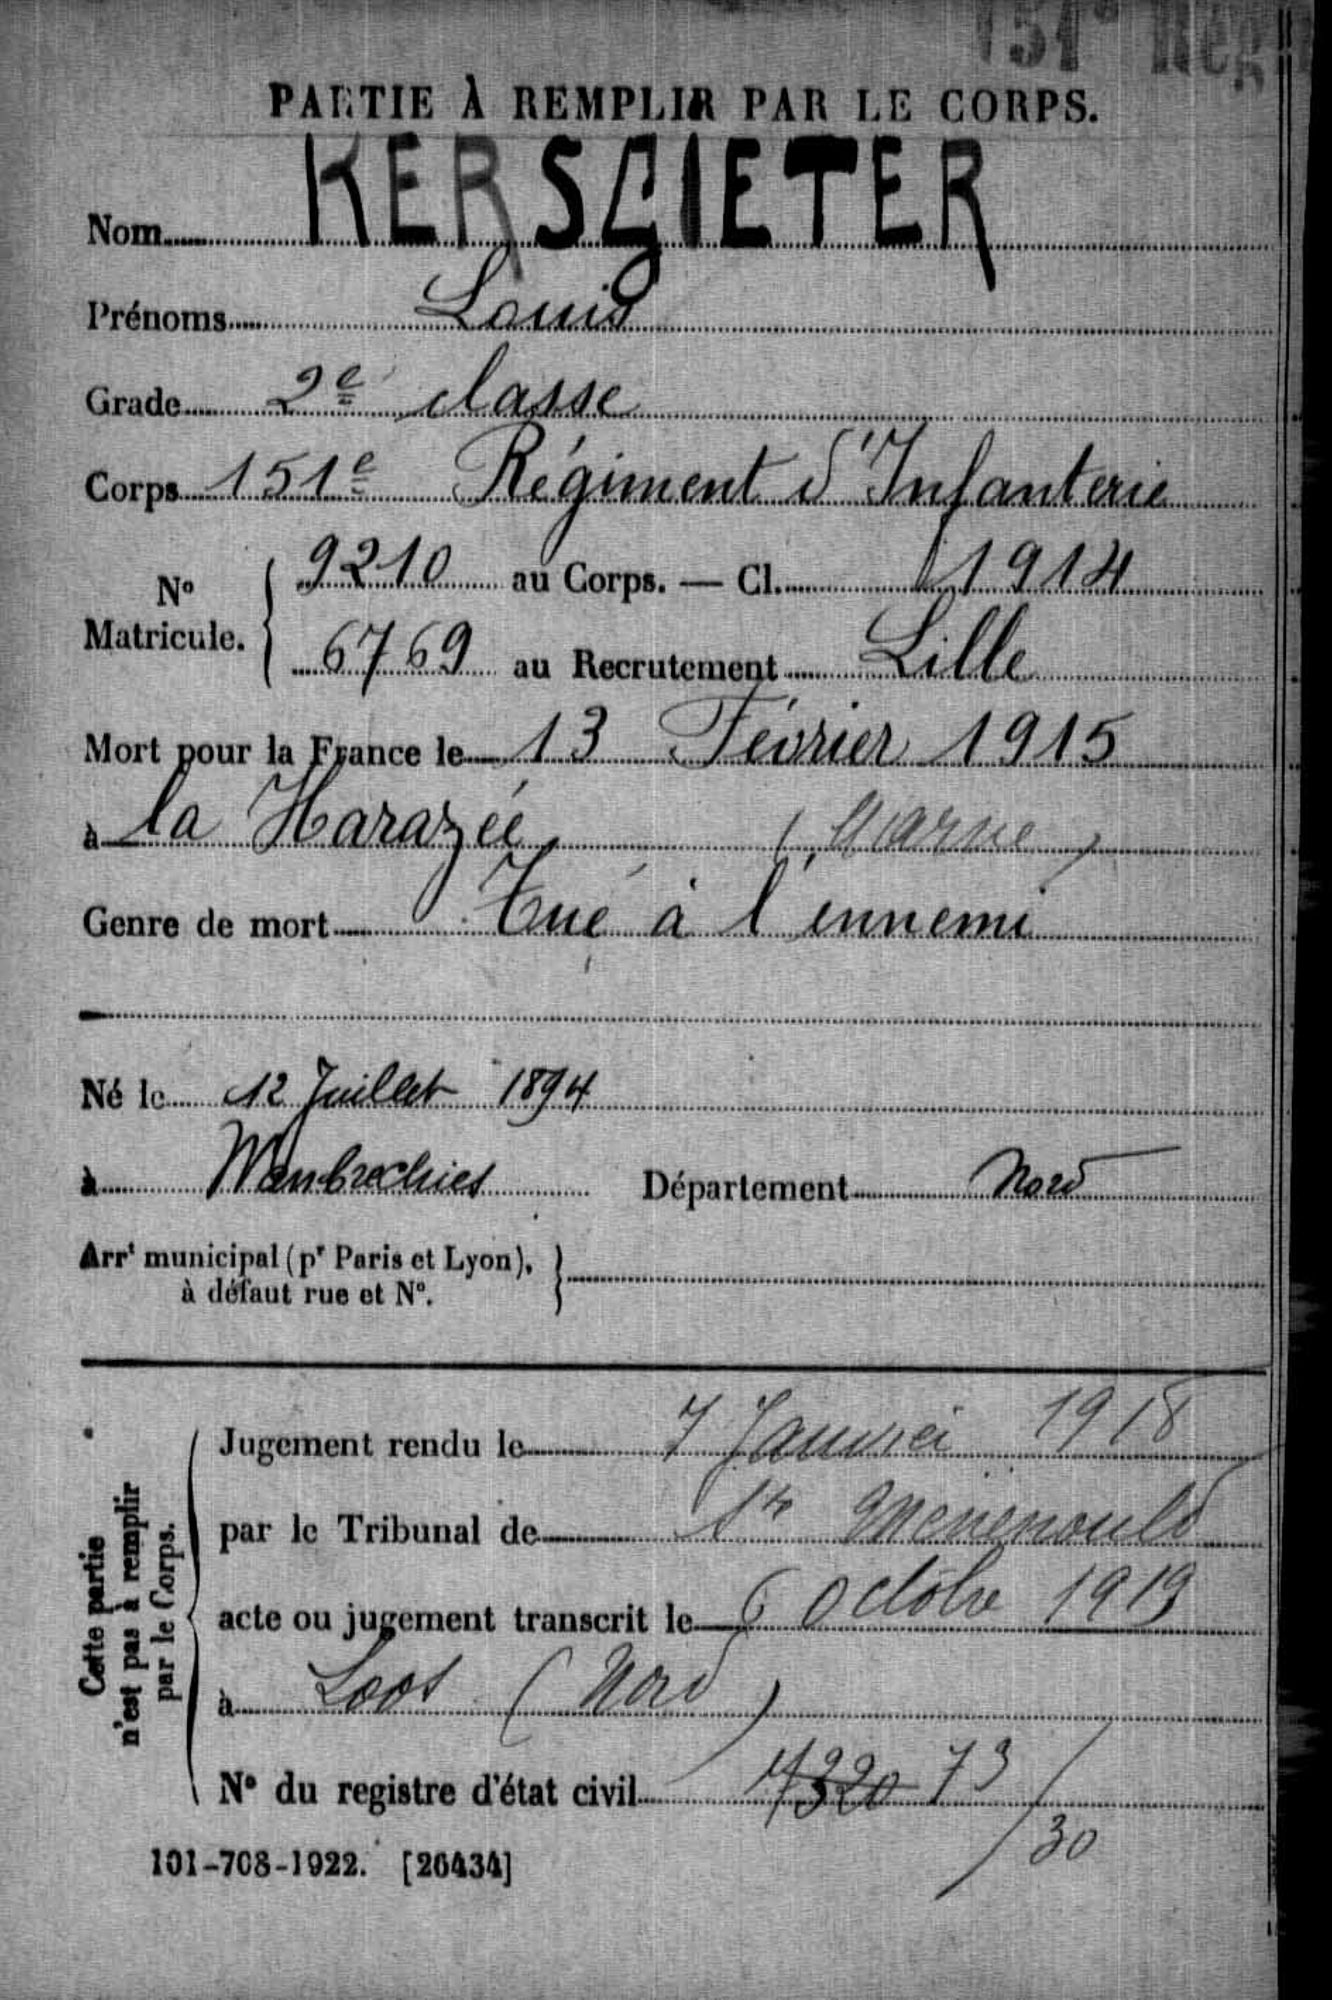 151e Rég
PARTIE À REMPLIR PAR LE CORPS.
Nom KERSGIETER
Prénoms Louis
Grade 2e classe
Corps 151e Régiment d'Infanterie
No Matricule. { 9210 au Corps. — Cl. 1914
6769 au Recrutement Lille
Mort pour la France le 13 Février 1915
à la Harazée (Marne)
Genre de mort Tué à l'ennemi
Né le 12 Juillet 1894
à Wambrechies Département Nord
Arrt municipal (pr Paris et Lyon), }
à défaut rue et No.
Cette partie
n'est pas à remplir
par le Corps.
Jugement rendu le 7 Janvier 1918
par le Tribunal de Ste Menehould
acte ou jugement transcrit le 6 octobre 1919
à Loos (Nord)
No du registre d'état civil 7320 73/30
101-708-1922. [26434]